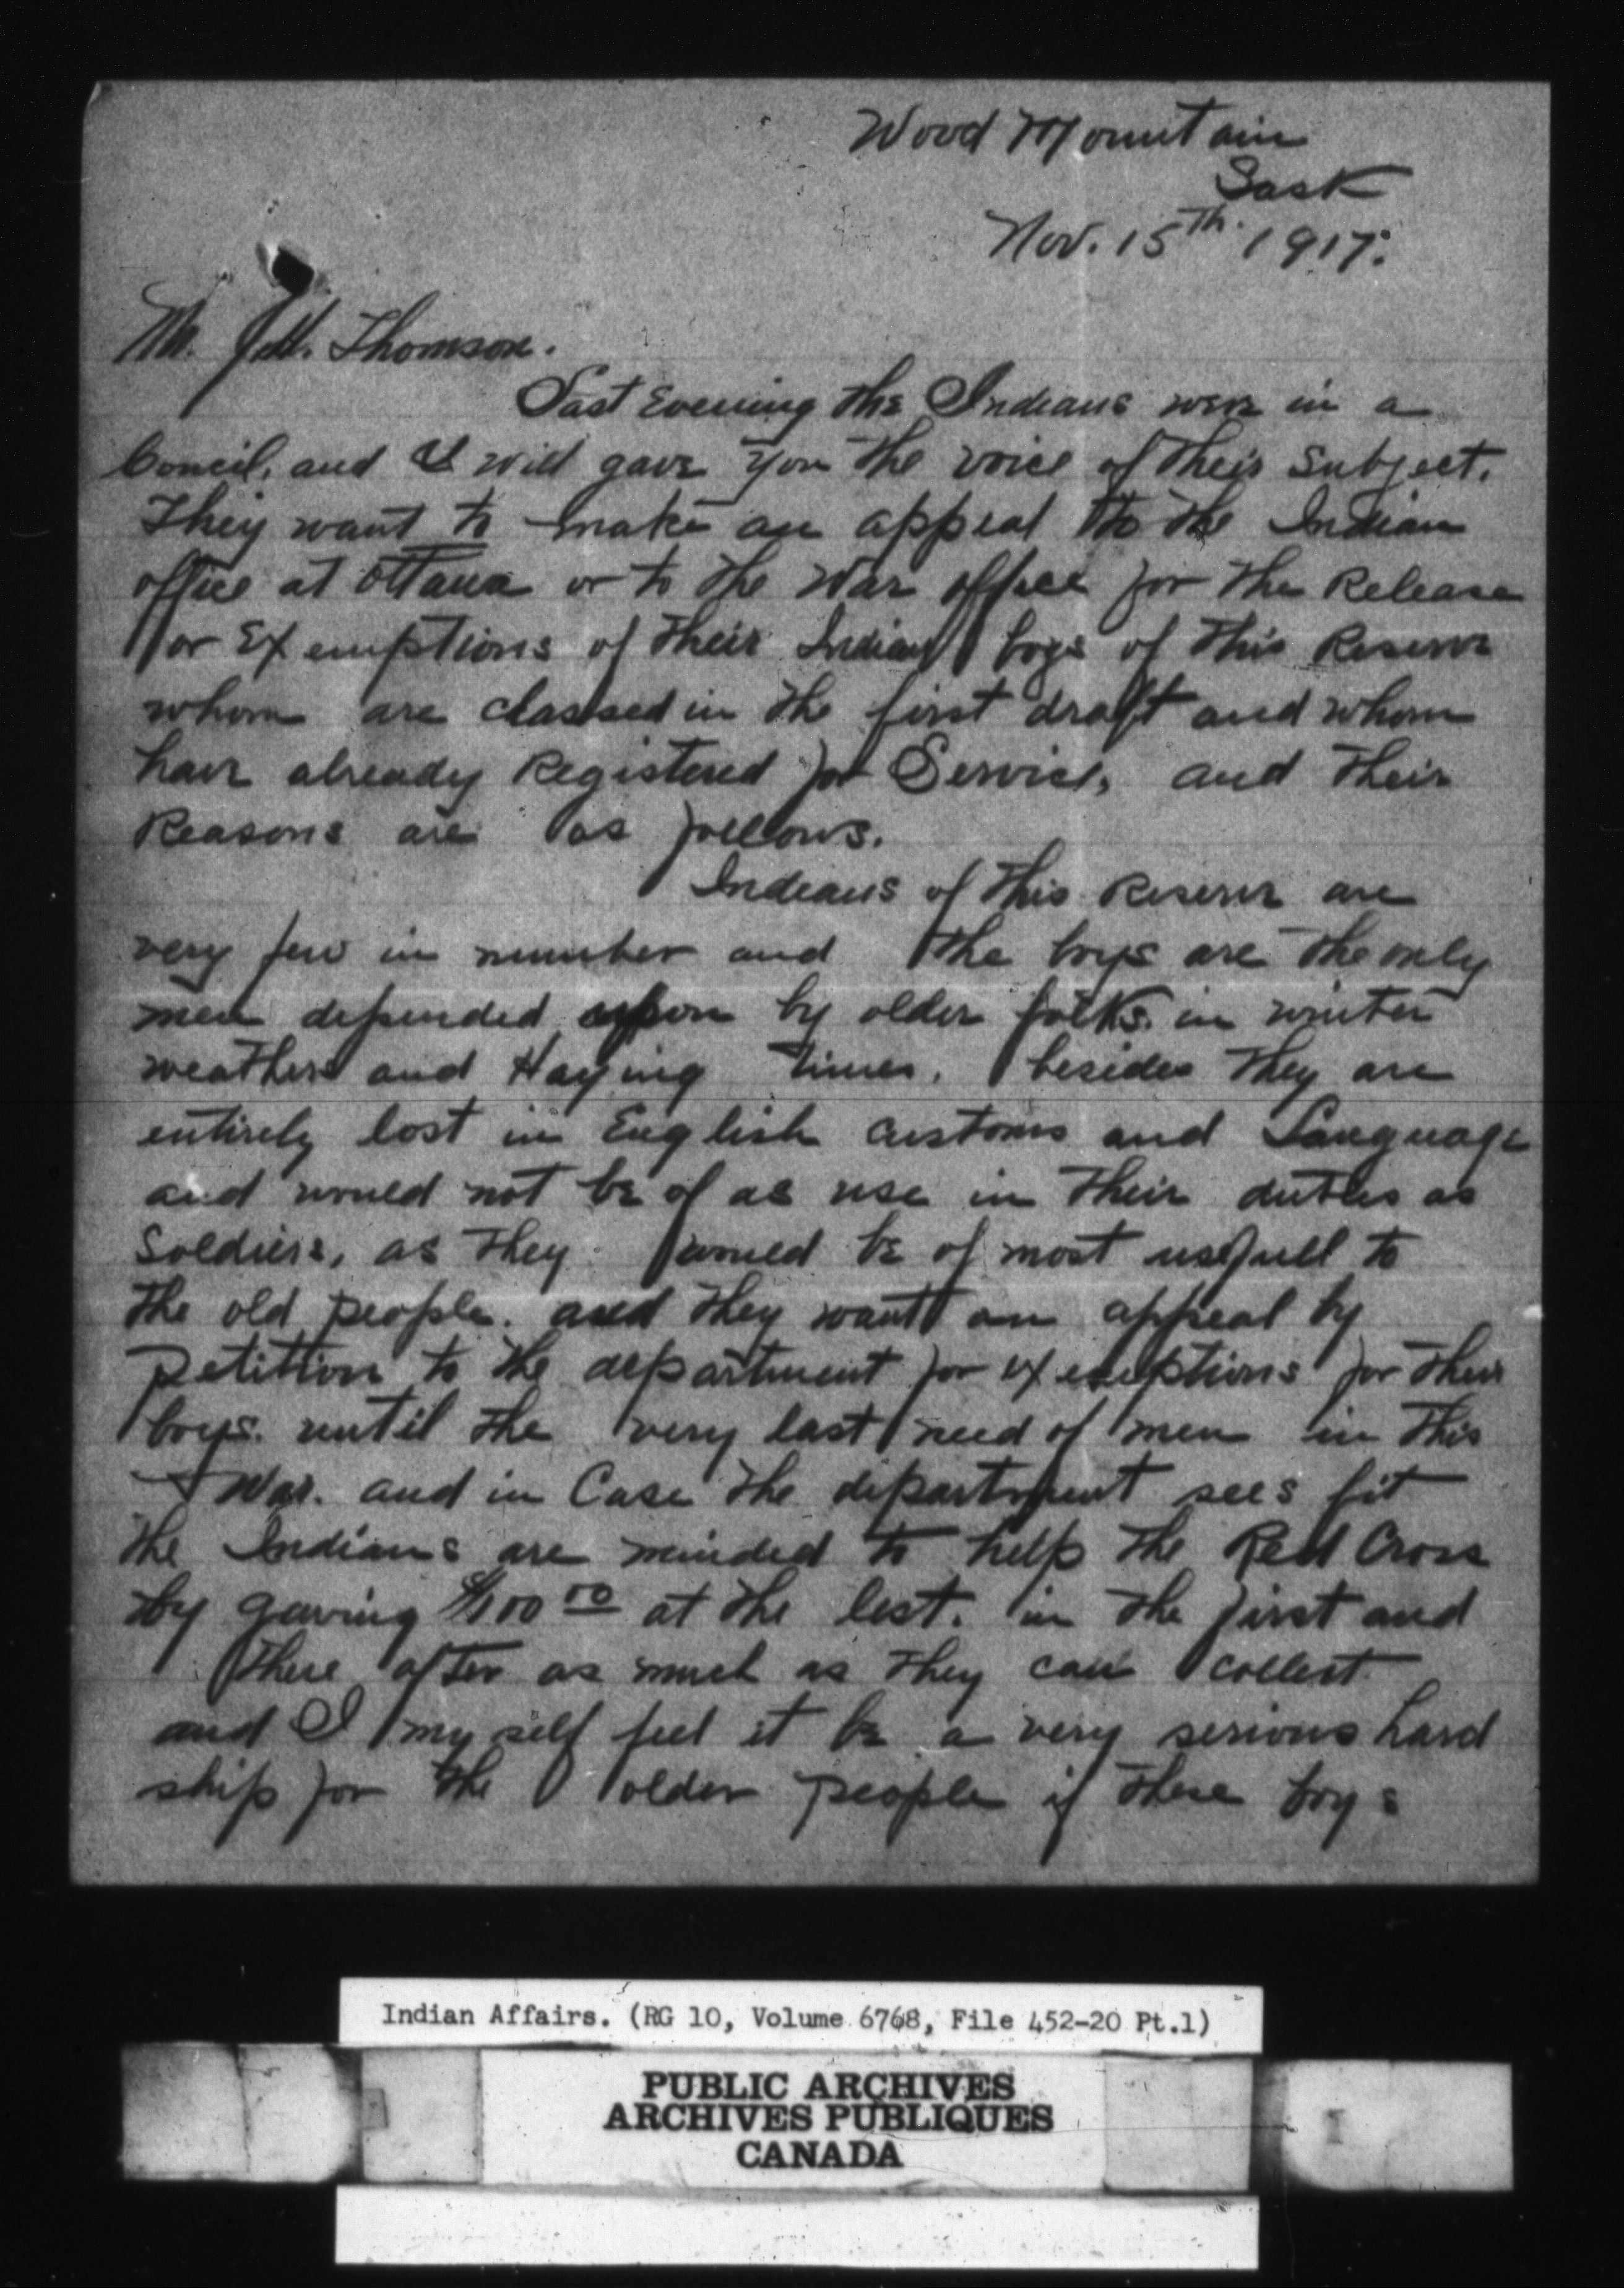 Wood Mountain
Sask
Nov. 15th 1917.
Mr. Thomson.
Last Evening the Indians were in a
Concil, and I will gave you the voice of their subject.
They want to make an appeal to the Indian
office at Ottawa or to the War office for the Release
or Exemptions of their Indian boys of this Reserve
whom are classed in the first draft and whom
have already Registered for Service, and their
Reasons are as follows.
Indians of this Reserve are
very few in number and the boys are the only
men depended upon by older folks. in winter
weathers and Haying times. besides they are
entirely lost in English customs and Language
and would not be of as use in their duties as
Soldiers, as they would be of most usefull to
the old people. and they want an appeal by
petition to the department for exemptions for their
boys. until the very last need of men in this
War. and in Case the department sees fit
the Indians are minded to help the Red Cross
by gaving $100 00 at the lest. in the first and
there after as much as they can collect
and I my self feel it be a very serious hard
ship for the older people if these boys
Indian Affairs. (RG 10, Volume 6768, File 452-20 Pt.1)
PUBLIC ARCHIVES
ARCHIVES PUBLIQUES
CANADA